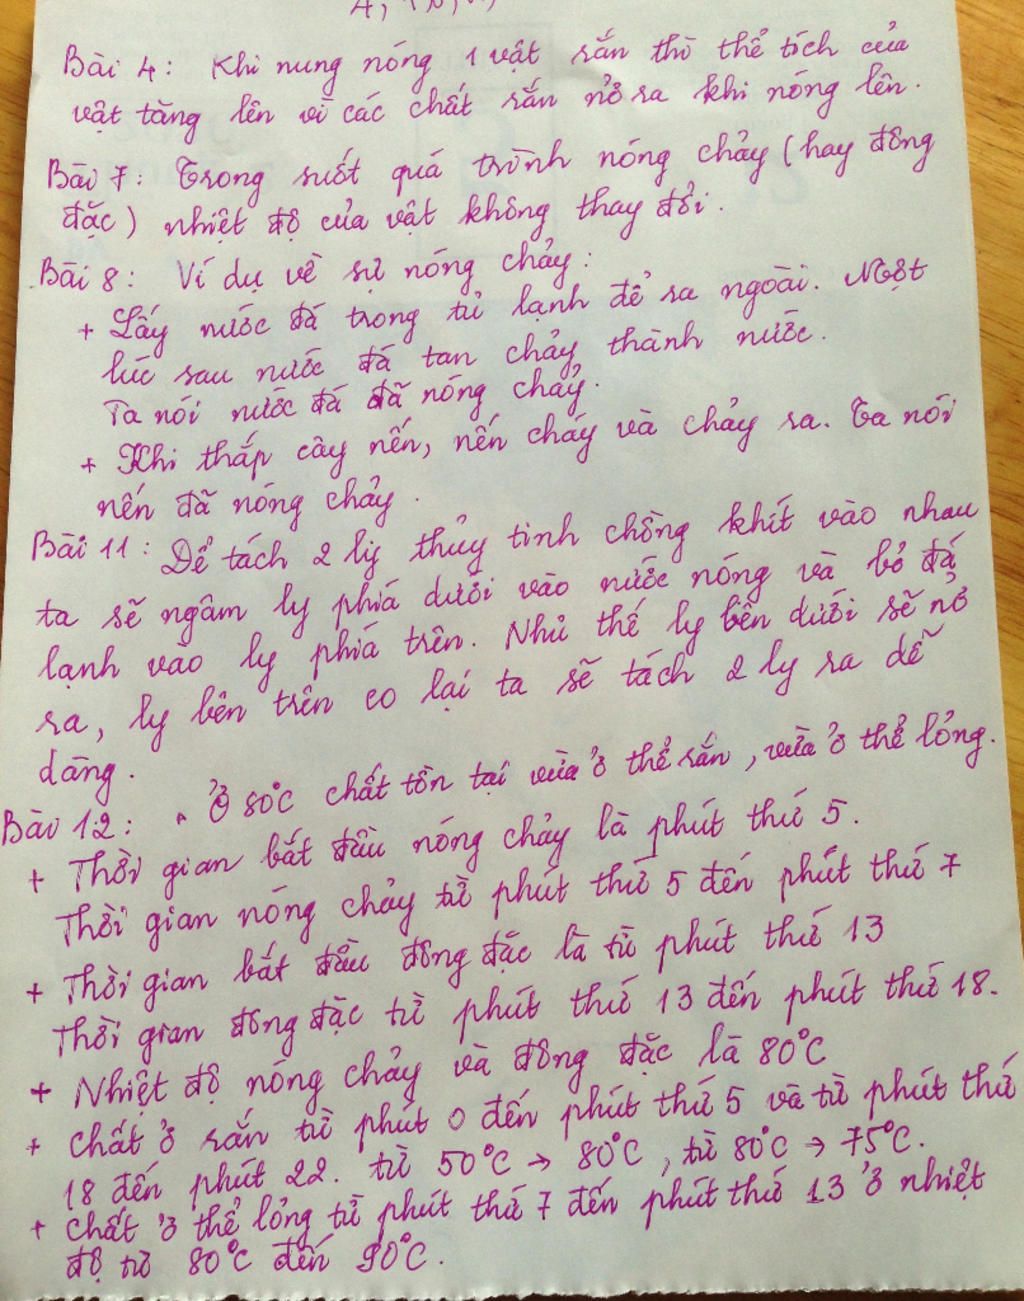 Bài 4: Khi nung nóng 1 vật rắn thì thể tích của
vật tăng lên vì các chất rắn nở ra khi nóng lên.
Bài 7: Trong suốt quá trình nóng chảy (hay đông
đặc) nhiệt độ của vật không thay đổi.
Bài 8: Ví dụ về sự nóng chảy:
+ Lấy nước đá trong tủ lạnh để ra ngoài. Một
lúc sau nước đá tan chảy thành nước.
Ta nói nước đá đã nóng chảy.
+ Khi thắp cây nến, nến cháy và chảy ra. Ta nói
nến đã nóng chảy.
Bài 11: Để tách 2 ly thủy tinh chồng khít vào nhau
ta sẽ ngâm ly phía dưới vào nước nóng và bỏ đá
lạnh vào ly phía trên. Như thế ly bên dưới sẽ nở
ra, ly bên trên co lại ta sẽ tách 2 ly ra dễ
dàng.
Bài 12: Ở 80°C chất tồn tại vừa ở thể rắn, vừa ở thể lỏng.
+ Thời gian bắt đầu nóng chảy là phút thứ 5.
Thời gian nóng chảy từ phút thứ 5 đến phút thứ 7
+ Thời gian bắt đầu đông đặc là từ phút thứ 13
Thời gian đông đặc từ phút thứ 13 đến phút thứ 18.
+ Nhiệt độ nóng chảy và đông đặc là 80°C
+ Chất ở rắn từ phút 0 đến phút thứ 5 và từ phút thứ
18 đến phút 22. từ 50°C → 80°C, từ 80°C → 75°C.
+ Chất ở thể lỏng từ phút thứ 7 đến phút thứ 13 ở nhiệt
độ từ 80°C đến 90°C.